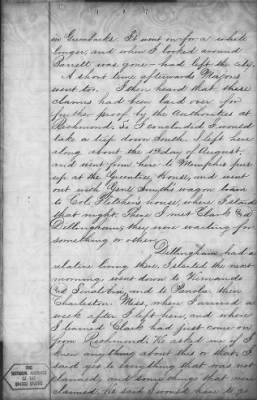 in Greenbacks. It went on for a while
longer, and when I looked around
Parrott was gone — had left the city.
A short time afterwards Majors
went too. I then heard that these
claims had been laid over for
further proof by the Authorities at
Richmond, so I concluded I would
take a trip down South. I left here
along about the 1st day of August,
and went from here to Memphis put
up at the Greenlee House, and went
out with Genl Smith's wagon train
to Col. Fletchers house, where I staid
that night. There I met Clark &
Dellingham; they were waiting for
something or other.
Dellingham had a
relative living there. I started the next
morning, went down to Hernando
& Senatobia, and to Panola, then
Charleston, Miss, where I arrived a
week after I left here, and where
I learned Clark had just come on
from Richmond. He asked me if I
knew anything about this or that. I
said yes to everything that was not
claimed, and some things that were
claimed. He said I would have to go
THE NATIONAL ARCHIVES OF THE UNITED STATES